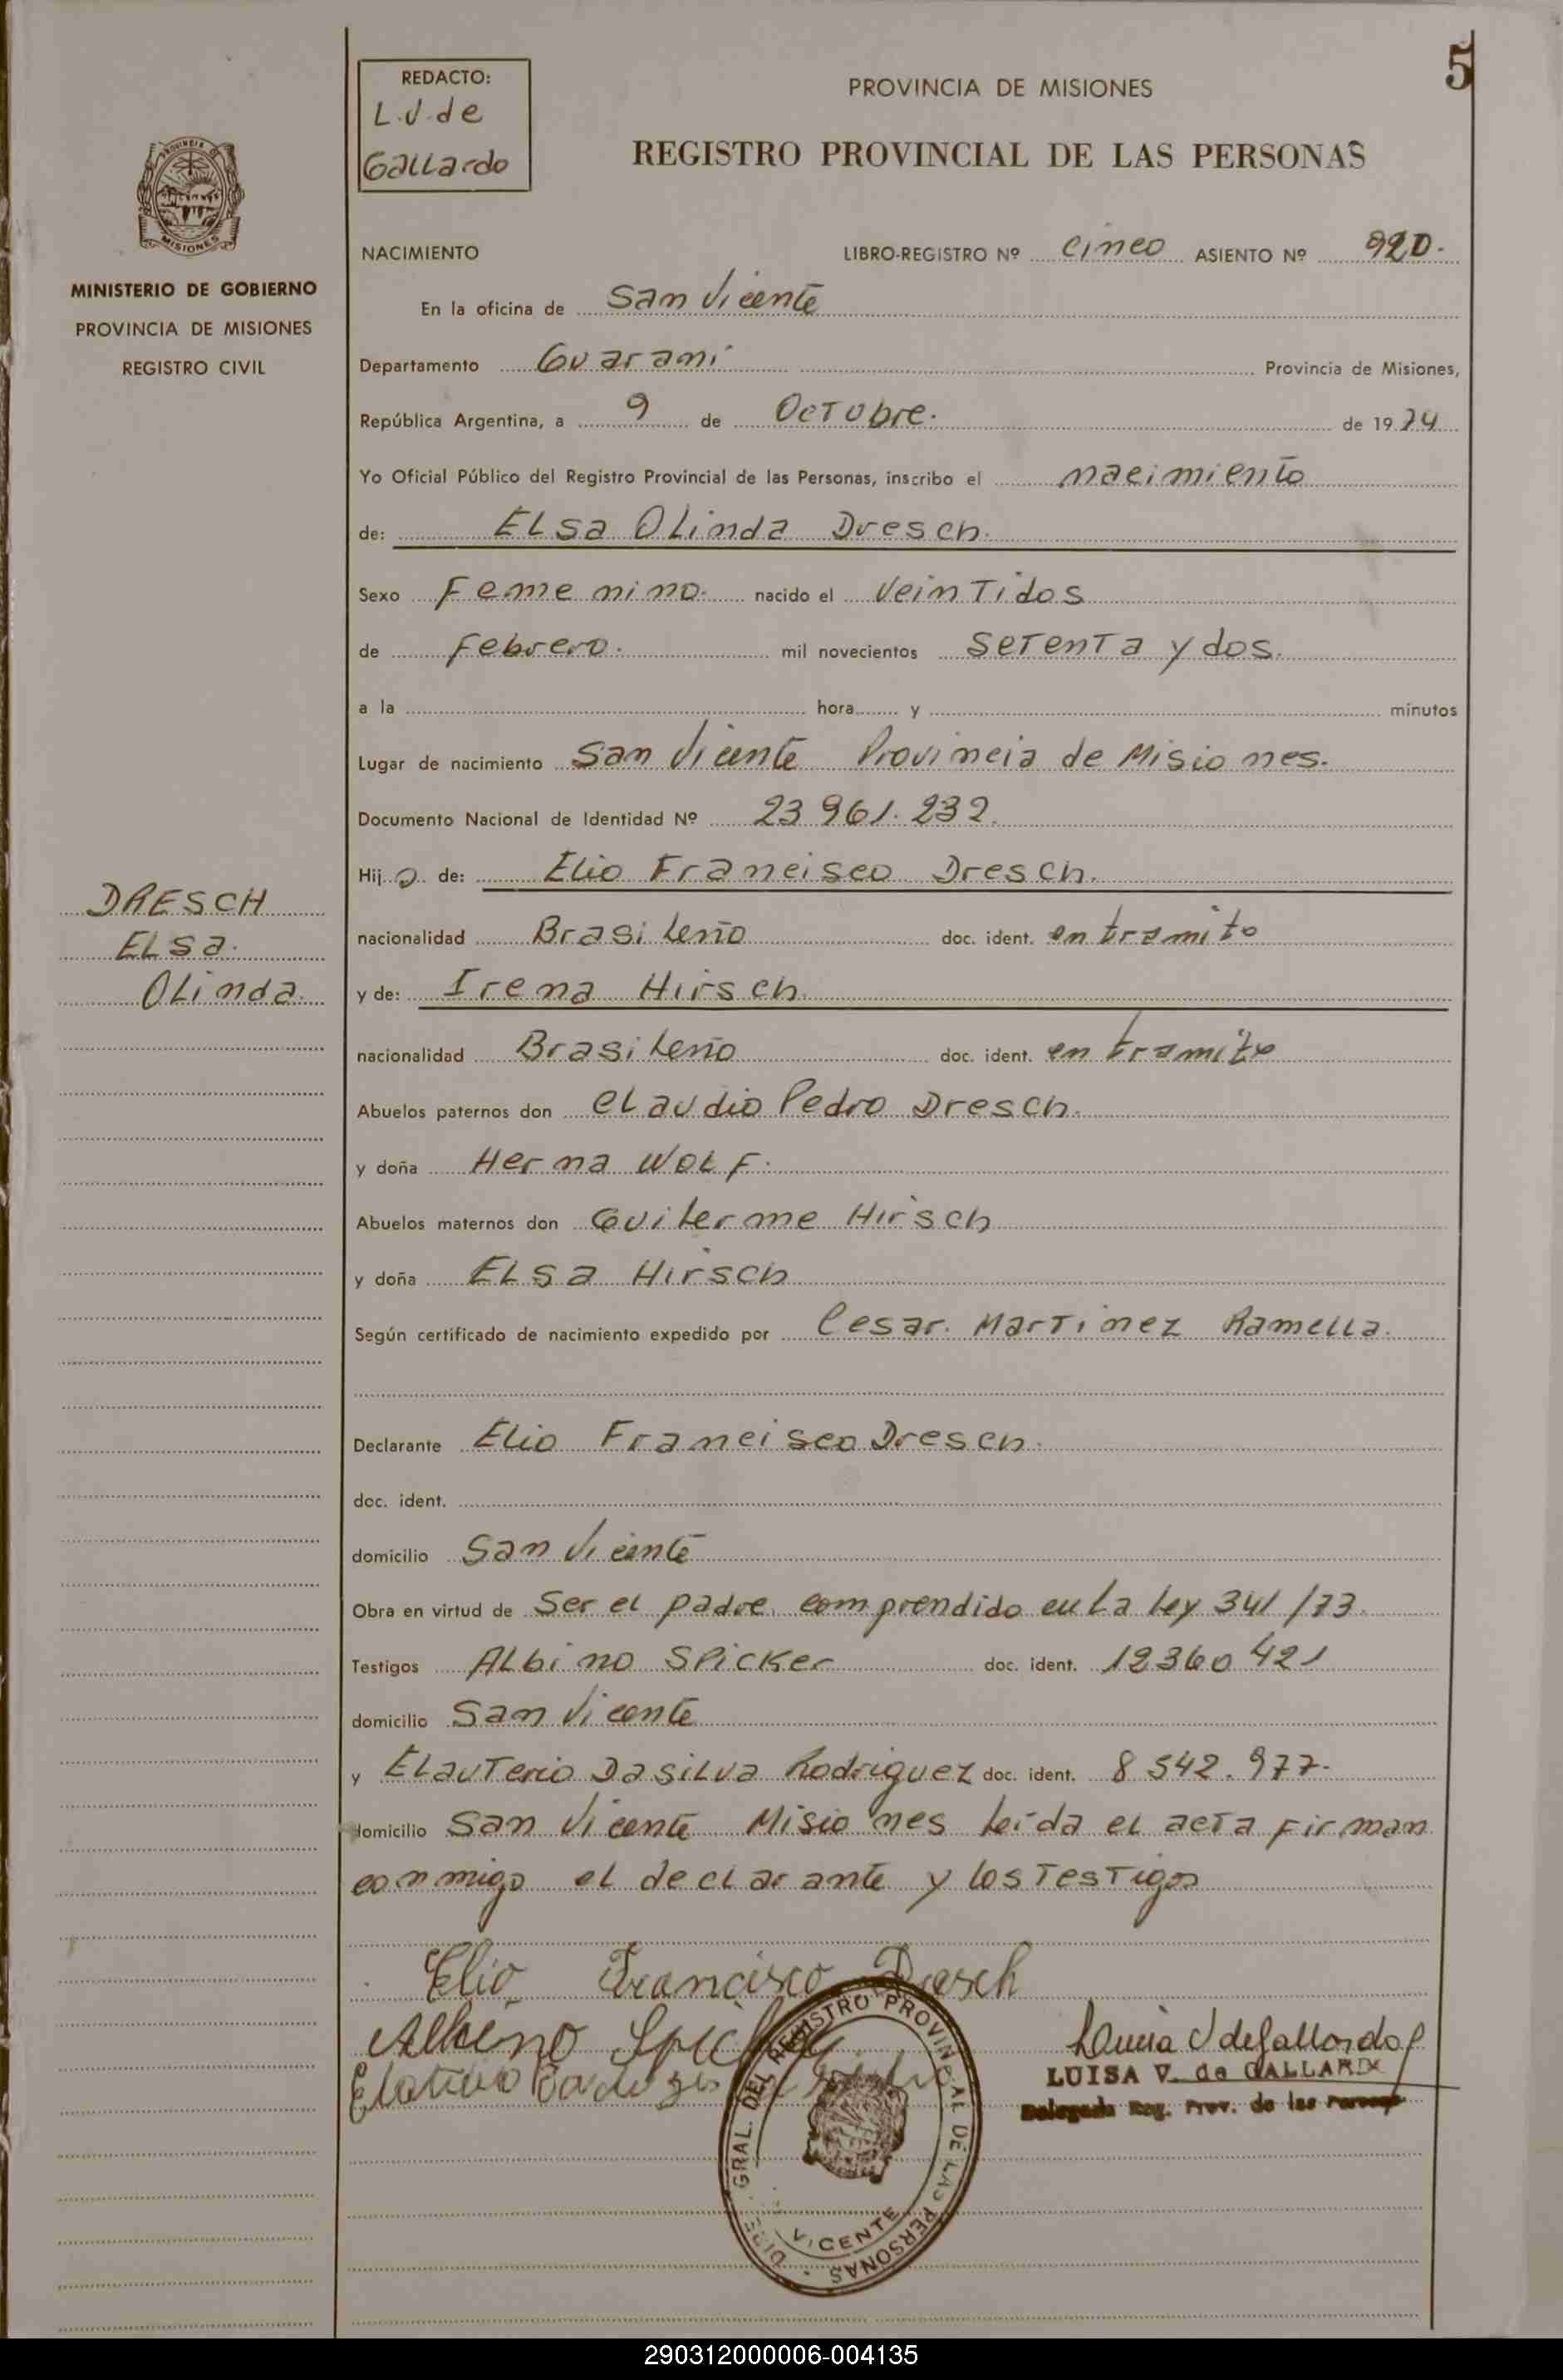 5
REDACTO:
L.V. de
Gallardo
PROVINCIA DE MISIONES
REGISTRO PROVINCIAL DE LAS PERSONAS
PROVINCIA
MISIONES
MINISTERIO DE GOBIERNO
PROVINCIA DE MISIONES
REGISTRO CIVIL
NACIMIENTO LIBRO-REGISTRO Nº cinco ASIENTO Nº 920.
En la oficina de San Vicente
Departamento Guarani Provincia de Misiones,
República Argentina, a 9 de Octubre. de 1974
Yo Oficial Público del Registro Provincial de las Personas, inscribo el nacimiento
de: Elsa Olinda Dresch.
Sexo Femenino. nacido el Veintidos
de Febrero. mil novecientos setenta y dos.
a la hora y minutos
Lugar de nacimiento San Vicente Provincia de Misiones.
Documento Nacional de Identidad Nº 23 961.232.
Hij a de: Elio Francisco Dresch.
DRESCH
ELSa.
OLinda.
nacionalidad Brasileño doc. ident. en tramite
y de: Irena Hirsch.
nacionalidad Brasileño doc. ident. en tramite
Abuelos paternos don Claudio Pedro Dresch.
y doña Herma Wolf.
Abuelos maternos don Guilerme Hirsch
y doña Elsa Hirsch
Según certificado de nacimiento expedido por Cesar. Martinez Ramella.
Declarante Elio Francisco Dresch.
doc. ident.
domicilio San Vicente
Obra en virtud de Ser el padre. comprendido en la ley 341/73.
Testigos Albino Spicker doc. ident. 12360 421
domicilio San Vicente
y Elauterio Dasilva Rodriguez doc. ident. 8 542.977.
domicilio San Vicente Misiones leida el acta firman
conmigo el declarante y los testigos
Elio Francisco Dresch
Albino
LUISA V. de GALLARDO
Delegada Reg. Prov. de las Personas
GRAL. DEL REGISTRO PROVINCIAL DE LAS PERSONAS
VICENTE
290312000006-004135